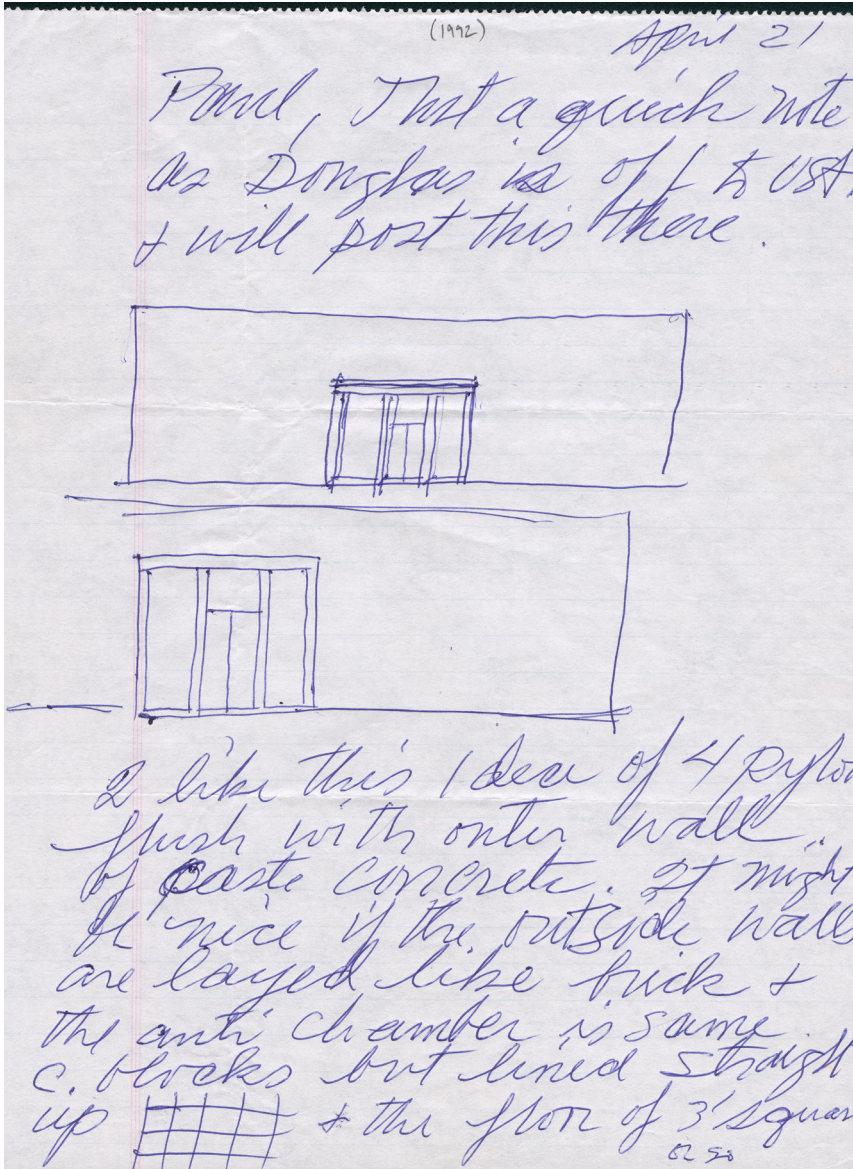 (1992)
April 21
Paul, Just a quick note
as Douglas is off to USA.
& will post this there.
I like this idea of 4 pylon
flush with outer wall..
of caste concrete. It might
be nice if the outside walls
are layed like brick &
the anti chamber is same
c. blocks but lined straight
up & the floor of 3' squar
or so